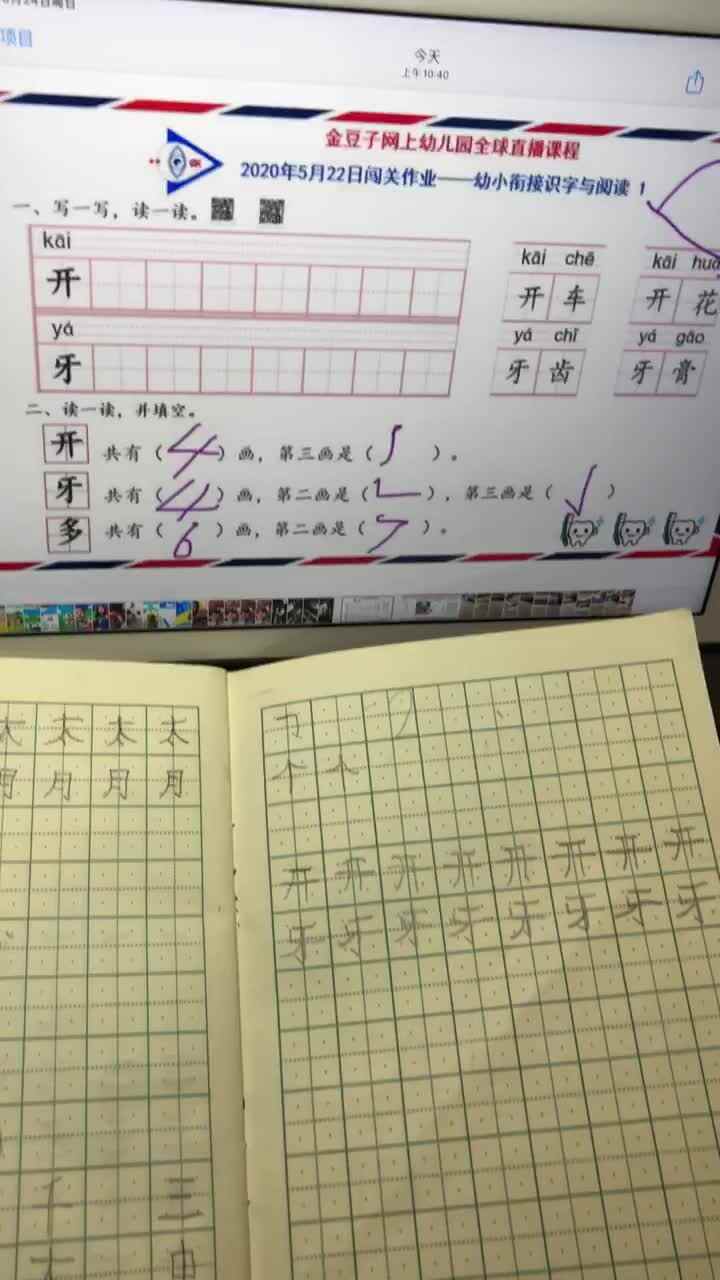 项目
今天
上午10:40
金豆子网上幼儿园全球直播课程
2020年5月22日闯关作业——幼小衔接识字与阅读 1
一、写一写，读一读。
kāi
开
yá
牙
kāi chē
开车
yá chǐ
牙齿
kāi hua
开花
yá gāo
牙膏
二、读一读，并填空。
开 共有（4）画，第三画是（丿）。
牙 共有（4）画，第二画是（ㄴ），第三画是（亅）
多 共有（6）画，第二画是（フ）。
太 太 太 太
月 月 月 月
千 三
个 人
开 开 开 开 开 开 开 开
牙 牙 牙 牙 牙 牙 牙 牙